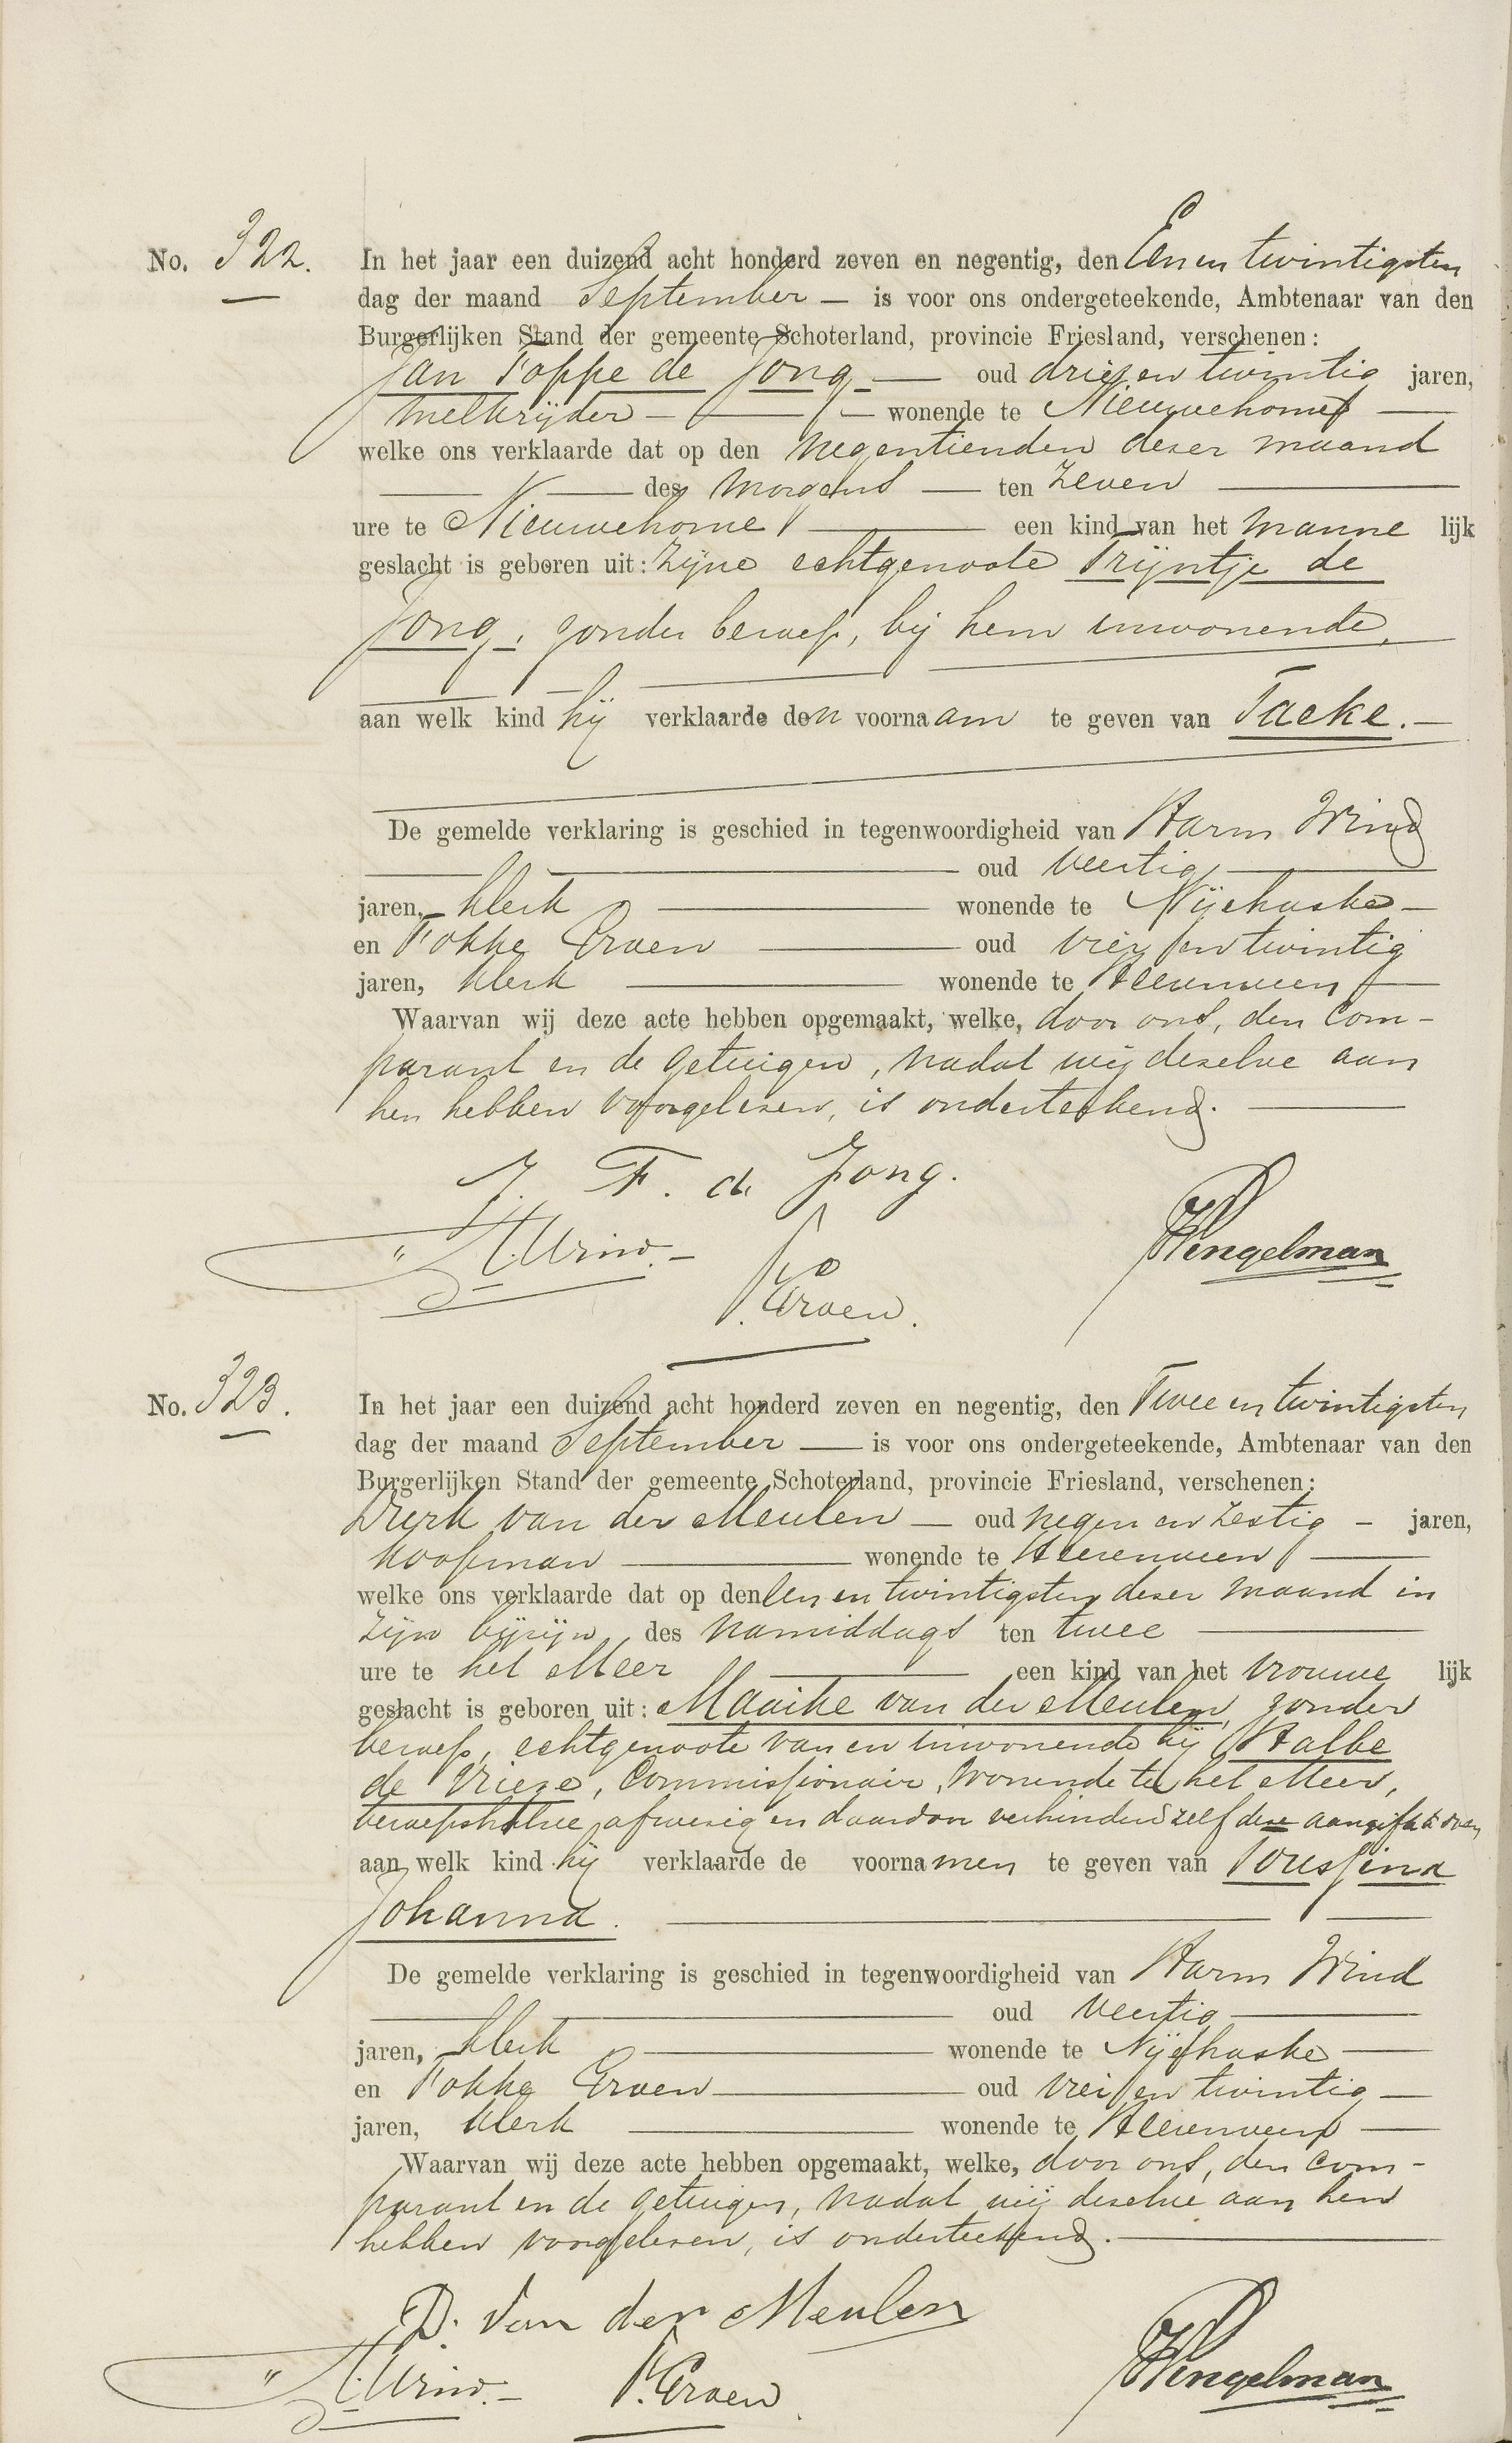 No. 322.
In het jaar een duizend acht honderd zeven en negentig, den Een en twintigsten
dag der maand September — is voor ons ondergeteekende, Ambtenaar van den
Burgerlijken Stand der gemeente Schoterland, provincie Friesland, verschenen:
Jan Foppe de Jong — oud drie en twintig jaren,
melkrijder — wonende te Nieuwehorne —
welke ons verklaarde dat op den negentienden dezer maand
— des morgens — ten zeven —
ure te Nieuwehorne — een kind van het manne lijk
geslacht is geboren uit: zijne echtgenoote Trijntje de
Jong, zonder beroep, bij hem inwonende,
aan welk kind hij verklaarde den voornaam te geven van Taeke. —
De gemelde verklaring is geschied in tegenwoordigheid van Harm Wind
— oud veertig —
jaren, klerk — wonende te Nijehaske —
en Fokke Groen — oud vier en twintig
jaren, klerk — wonende te Heerenveen —
Waarvan wij deze acte hebben opgemaakt, welke, door ons, den com-
parant en de getuigen, nadat wij dezelve aan
hen hebben voorgelezen, is onderteekend. —
J. F. de Jong.
H. Wind. —
F. Groen.
Hengelman
No. 323.
In het jaar een duizend acht honderd zeven en negentig, den Twee en twintigsten
dag der maand September — is voor ons ondergeteekende, Ambtenaar van den
Burgerlijken Stand der gemeente Schoterland, provincie Friesland, verschenen:
Durk van der Meulen — oud negen en zestig — jaren,
koopman — wonende te Heerenveen —
welke ons verklaarde dat op den een en twintigsten dezer maand in
zijn bijzijn, des namiddags ten twee —
ure te het Meer — een kind van het vrouwe lijk
geslacht is geboren uit: Maaike van der Meulen, zonder
beroep, echtgenoote van en inwonende bij Halbe
de Vrieze, Commissionair, wonende te het Meer,
beroepshalve afwezig en daardoor verhinderd zelf deze aangifte te doen
aan welk kind hij verklaarde de voornamen te geven van Toussina
Johanna.
De gemelde verklaring is geschied in tegenwoordigheid van Harm Wind
— oud veertig —
jaren, klerk — wonende te Nijehaske —
en Fokke Groen — oud vier en twintig —
jaren, klerk — wonende te Heerenveen —
Waarvan wij deze acte hebben opgemaakt, welke, door ons, den com-
parant en de getuigen, nadat wij dezelve aan hen
hebben voorgelezen, is onderteekend. —
D. van der Meulen
H. Wind. — F. Groen
Hengelman